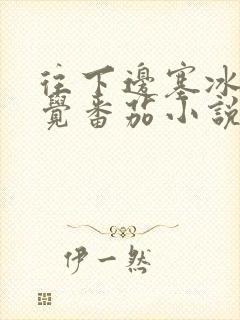 往下邊塞冰
覺番茄小說
伊一然